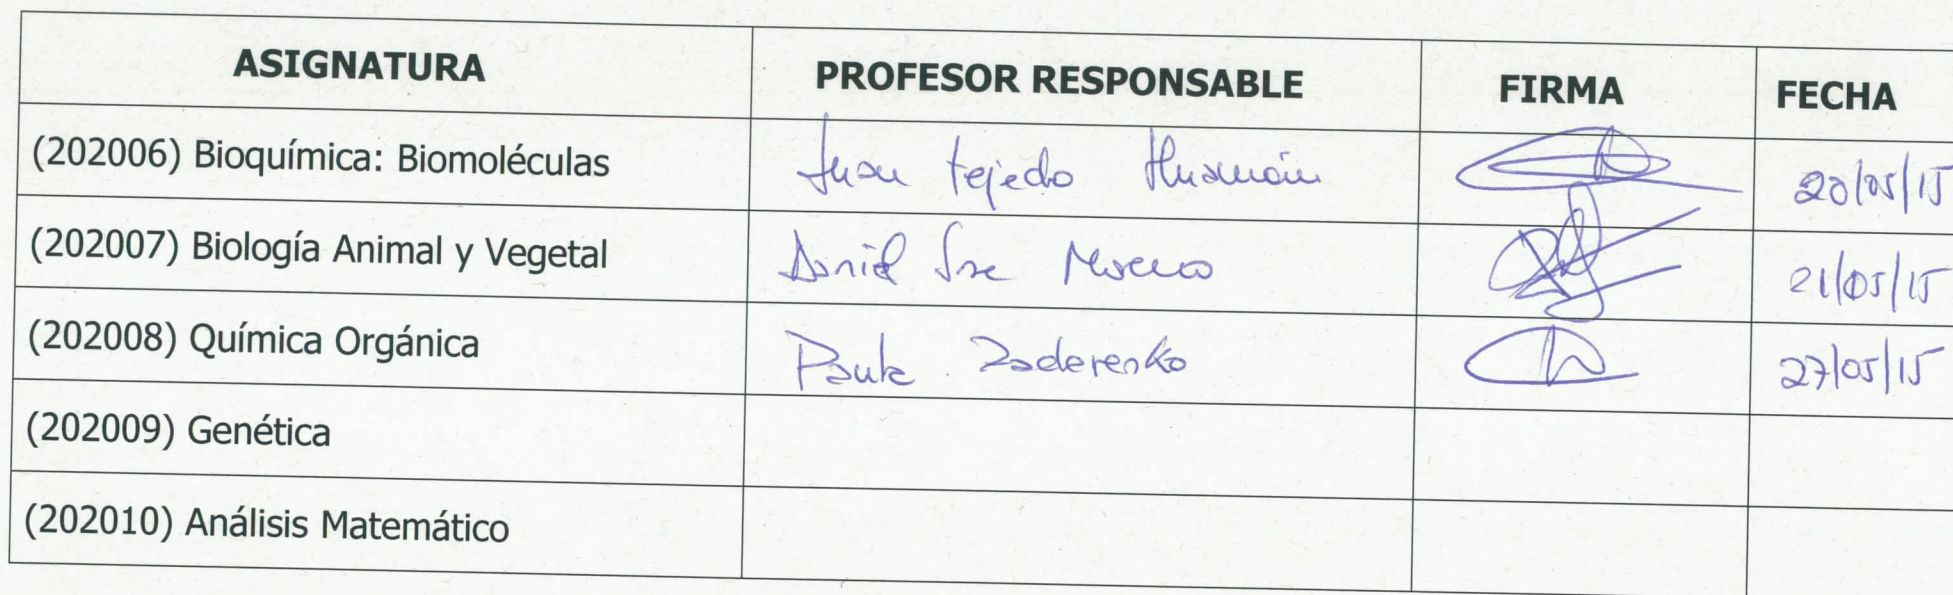 ASIGNATURA PROFESOR RESPONSABLE FIRMA FECHA
(202006) Bioquímica: Biomoléculas Juan Tejedo Huamán 20/05/15
(202007) Biología Animal y Vegetal Moreno 21/05/15
(202008) Química Orgánica Paula Zaderenko 27/05/15
(202009) Genética
(202010) Análisis Matemático